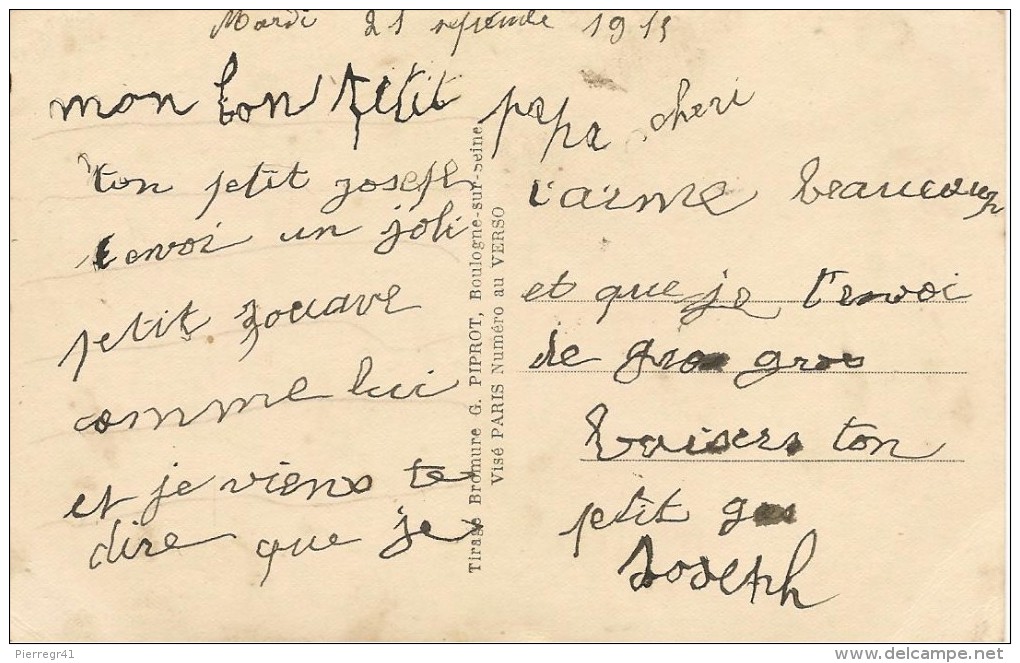 Mardi 21 septembre 1915
mon bon petit papa cheri
ton petit joseph
t'envoi un joli
petit zouave
comme lui
et je viens te
dire que je
t'aime beaucoup
et que je t'envoi
de gros gros
baisers ton
petit gas
Joseph
Tirage Bromure G. PIPROT, Boulogne-sur-Seine
Visé PARIS Numéro au VERSO
Pierregr41
delcampe.net